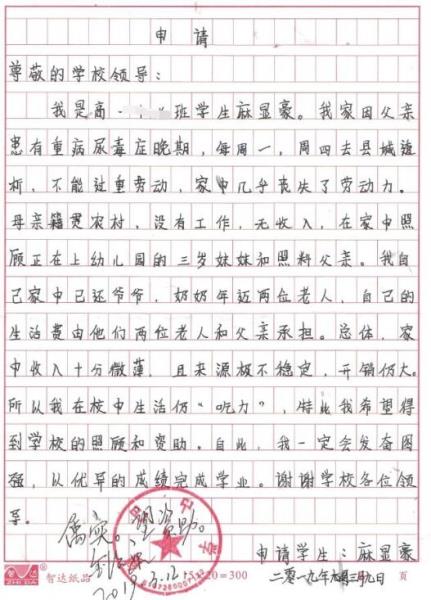 申请
尊敬的学校领导：
我是高 班学生麻显豪。我家因父亲
患有重病尿毒症晚期，每周一，周四去县城透
析，不能过重劳动，家中几乎丧失了劳动力。
母亲籍贯农村，没有工作，无收入，在家中照
顾正在上幼儿园的三岁妹妹和照料父亲。我自
己家中已还爷爷，奶奶年迈两位老人，自己的
生活费由他们两位老人和父亲承担。总体，家
中收入十分微薄，且来源极不稳定，开销仍大。
所以我在校中生活仍“吃力”，特此我希望得
到学校的照顾和资助。自此，我一定会发奋图
强，以优异的成绩完成学业。谢谢学校各位领
导。
属实。
申请学生：麻显豪
ZHI DA 智达纸品 20=300 二零一九年九月 日 页